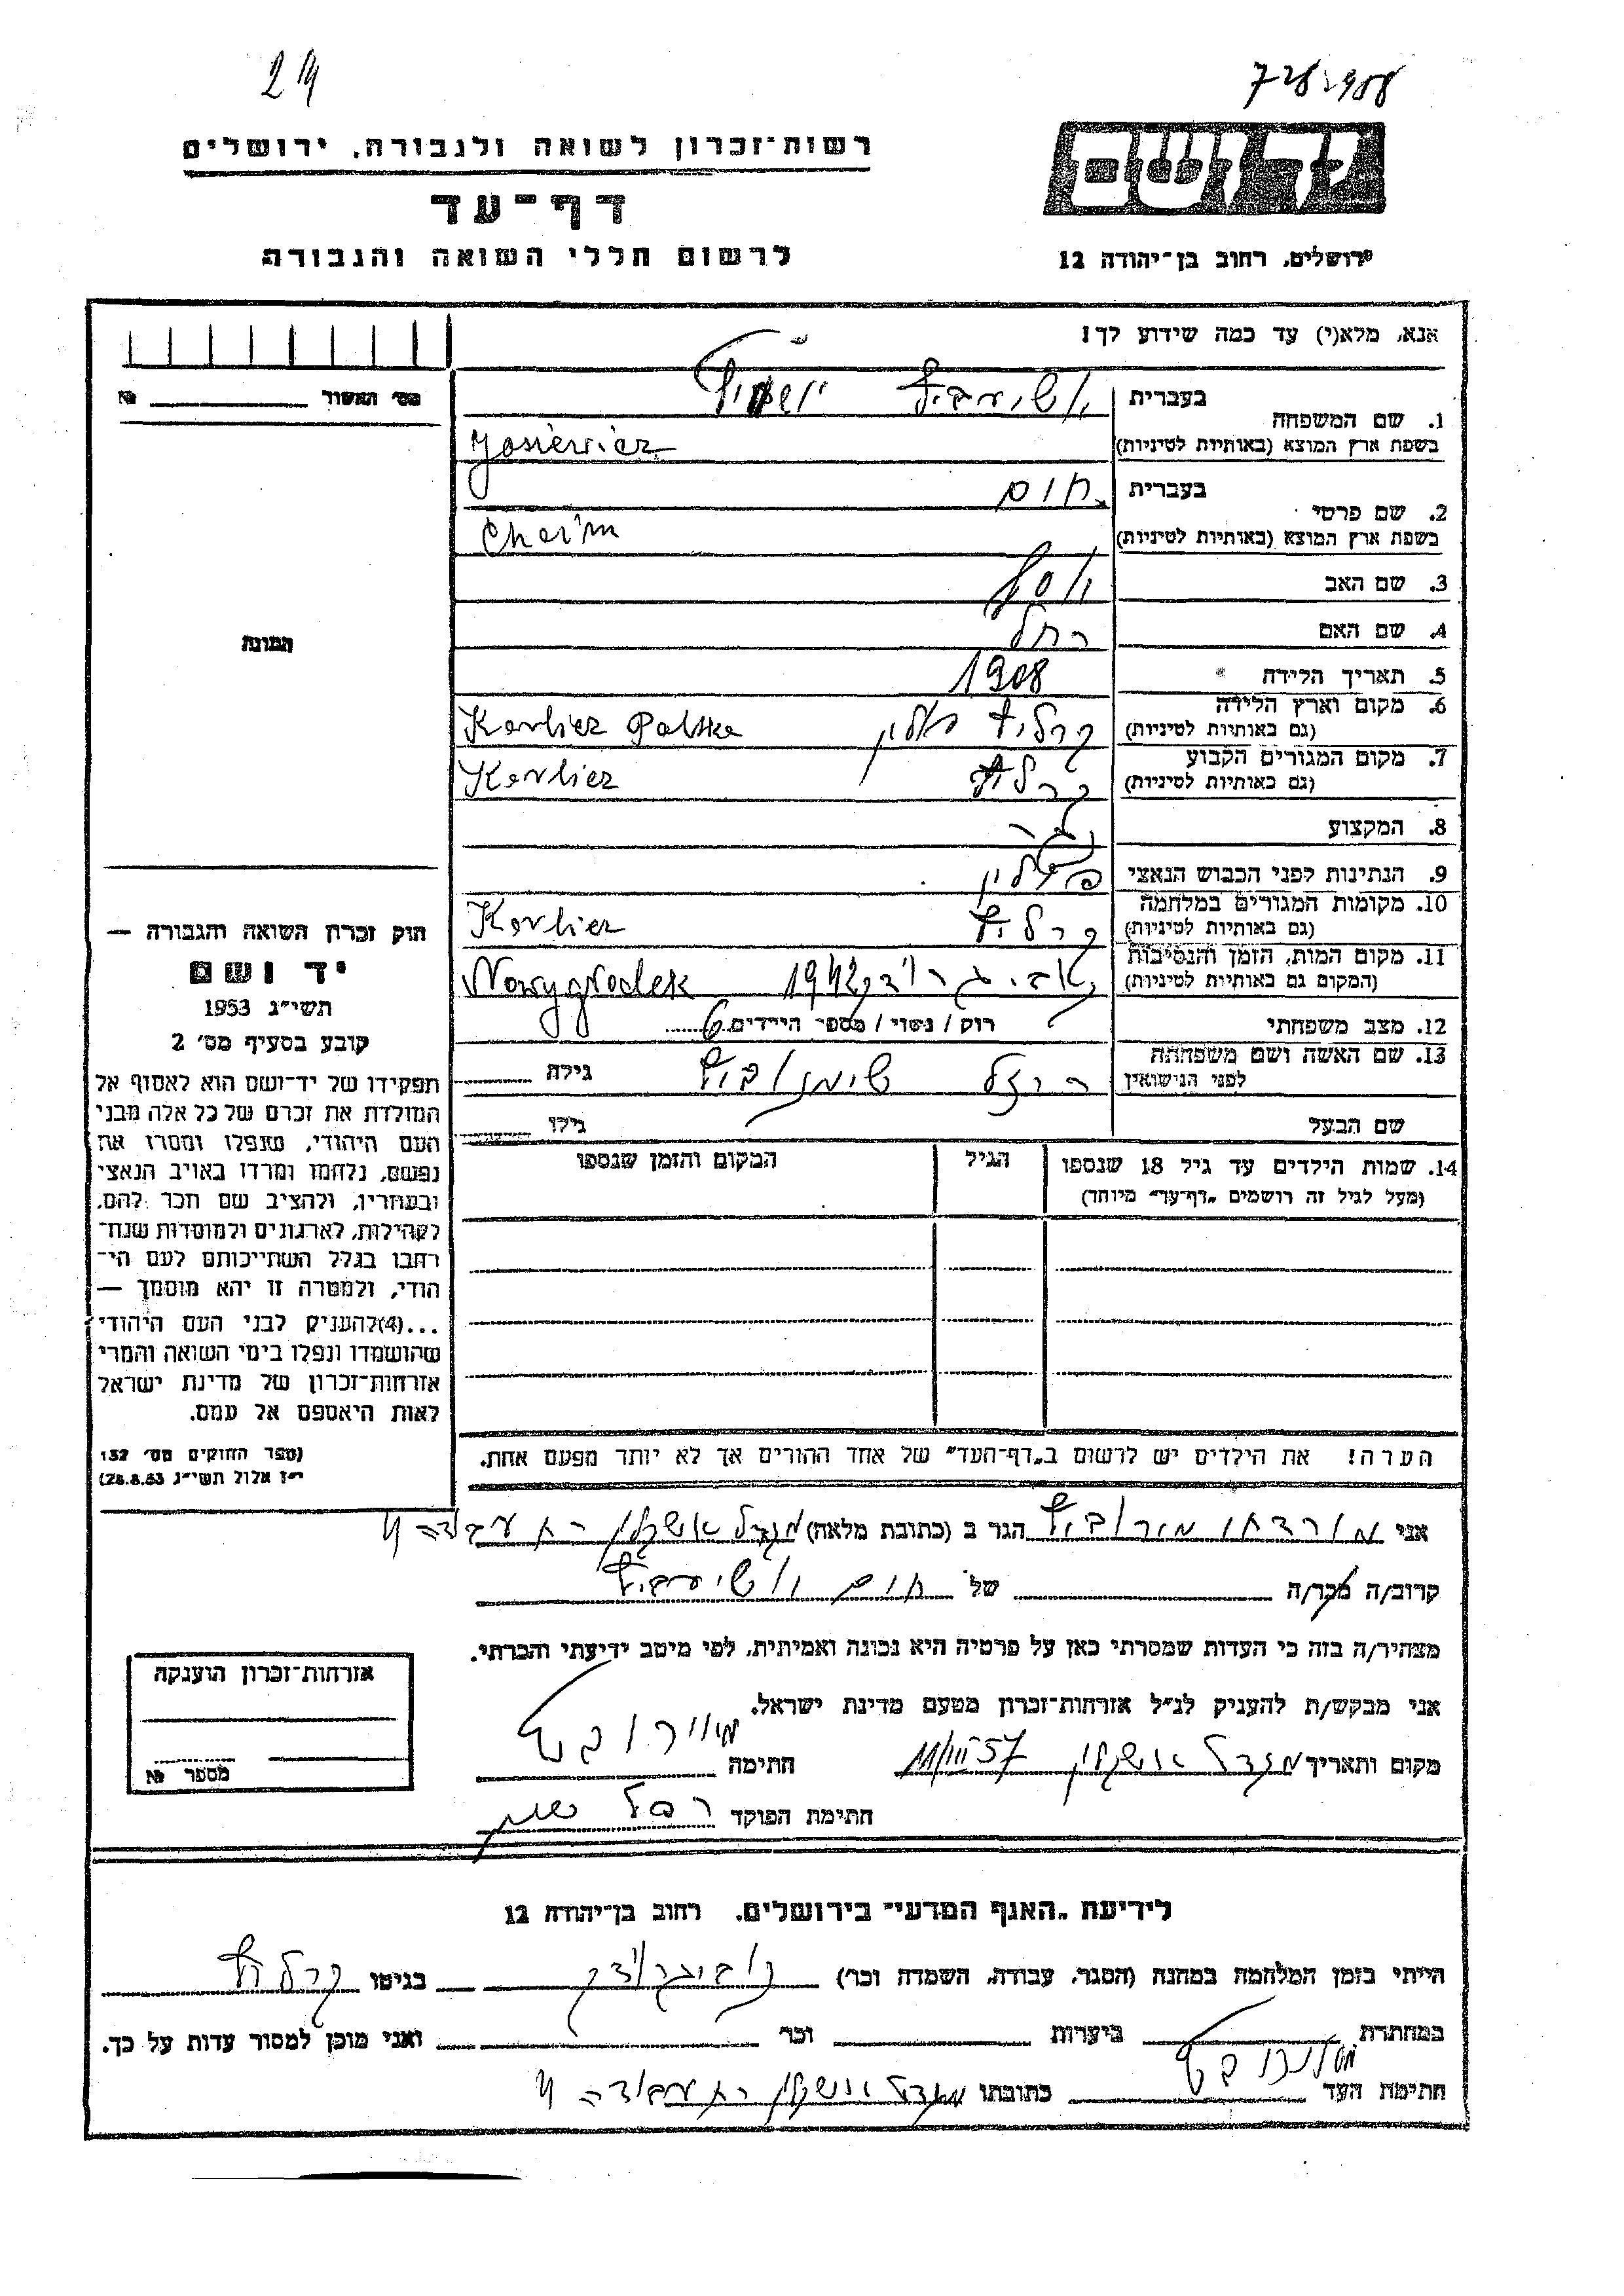 24
728.908
רשות־זכרון לשואה ולגבורה, ירושלים
דף־עד
לרשום חללי השואה והגבורה
יד ושם
ירושלים, רחוב בן־יהודה 12
אנא, מלא(י) עד כמה שידוע לך!
מס׳ האשור №
1. שם המשפחה
בעברית
בשפת ארץ המוצא (באותיות לטיניות) Josiewicz
2. שם פרטי
בעברית חיים
בשפת ארץ המוצא (באותיות לטיניות) Chaim
3. שם האב יוסף
4. שם האם רחל
5. תאריך הלידה 1908
6. מקום וארץ הלידה
(גם באותיות לטיניות) קרליץ פולין Korlicz Polska
7. מקום המגורים הקבוע
(גם באותיות לטיניות) קרליץ Korlicz
8. המקצוע
9. הנתינות לפני הכבוש הנאצי פולין
10. מקומות המגורים במלחמה
(גם באותיות לטיניות) קרליץ Korlicz
11. מקום המות, הזמן והנסיבות
(המקום גם באותיות לטיניות) נאביגרודק 1942 Nowygrodek
12. מצב משפחתי רוק / נשוי / מספר הילדים 6
13. שם האשה ושם משפחתה
לפני הנישואין שימנוביץ גילה
שם הבעל גילו
14. שמות הילדים עד גיל 18 שנספו
(מעל לגיל זה רושמים „דף־עד״ מיוחד)
הגיל
המקום והזמן שנספו
הערה! את הילדים יש לרשום ב„דף־העד״ של אחד ההורים אך לא יותר מפעם אחת.
התמונה
חוק זכרון השואה והגבורה —
יד ושם
תשי״ג 1953
קובע בסעיף מס׳ 2
תפקידו של יד־ושם הוא לאסוף אל
המולדת את זכרם של כל אלה מבני
העם היהודי, שנפלו ומסרו את
נפשם, נלחמו ומרדו באויב הנאצי
ובעוזריו, ולהציב שם וזכר להם,
לקהילות, לארגונים ולמוסדות שנח־
רבו בגלל השתייכותם לעם הי־
הודי, ולמטרה זו יהא מוסמך —
...(4)להעניק לבני העם היהודי
שהושמדו ונפלו בימי השואה והמרי
אזרחות־זכרון של מדינת ישראל
לאות היאספם אל עמם.
(ספר החוקים מס׳ 132
י״ז אלול תשי״ג 28.8.53)
אני מורדכי מירוביץ הגר ב (כתובת מלאה) מגדל אשקלון
קרוב/ה מכר/ה של חיים
מצהיר/ה בזה כי העדות שמסרתי כאן על פרטיה היא נכונה ואמיתית, לפי מיטב ידיעתי והכרתי.
אני מבקש/ת להעניק לנ״ל אזרחות־זכרון מטעם מדינת ישראל.
מקום ותאריך מגדל אשקלון 11/III 57 חתימה
חתימת הפוקד
אזרחות־זכרון הוענקה
מספר №
לידיעת „האגף המדעי״ בירושלים, רחוב בן־יהודה 12
הייתי בזמן המלחמה במחנה (הסגר, עבודה, השמדה וכו׳) נוביגרודק בגיטו קרליץ
במחתרת ביערות וכו׳ ואני מוכן למסור עדות על כך.
חתימת העד כתובתו מגדל אשקלון